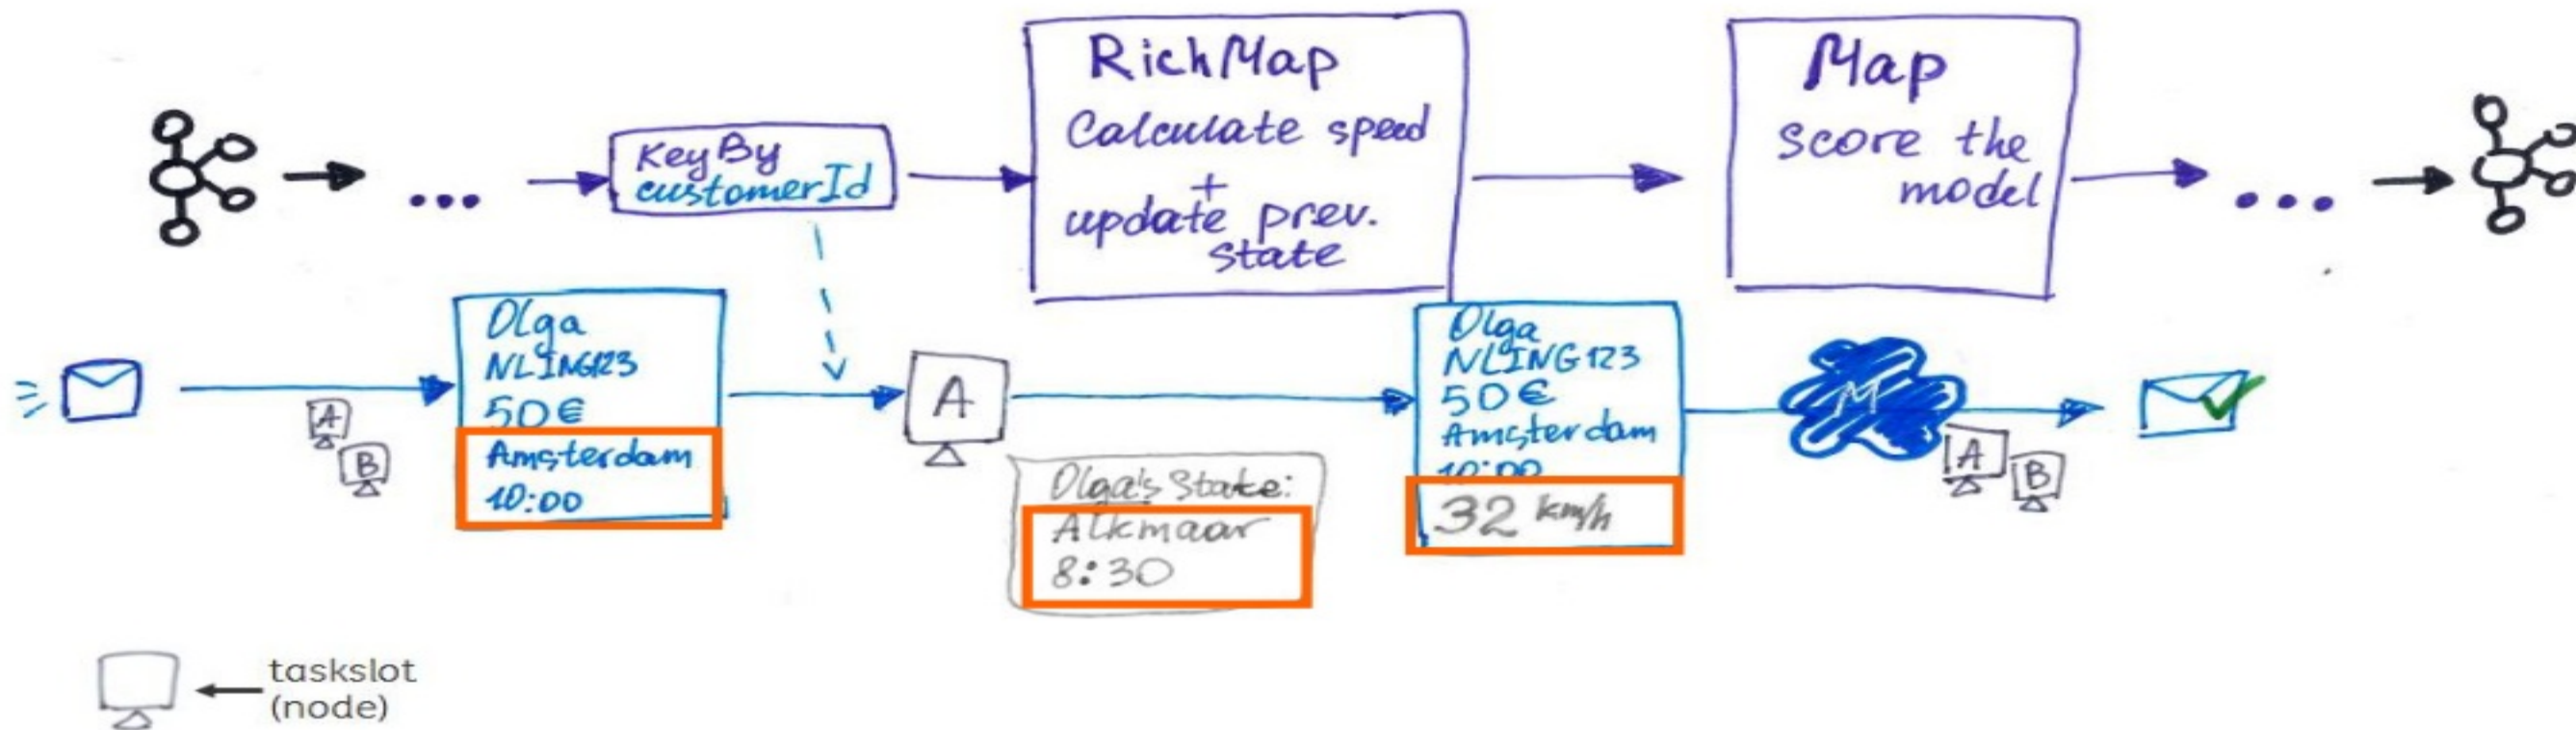 RichMap
Calculate speed
+
update prev.
state
Map
score the
model
KeyBy
customerId
...
...
Olga
NLING123
50€
Amsterdam
10:00
A
B
A
Olga's State:
Alkmaar
8:30
Olga
NLING123
50€
Amsterdam
10:00
32 km/h
M
A
B
taskslot
(node)